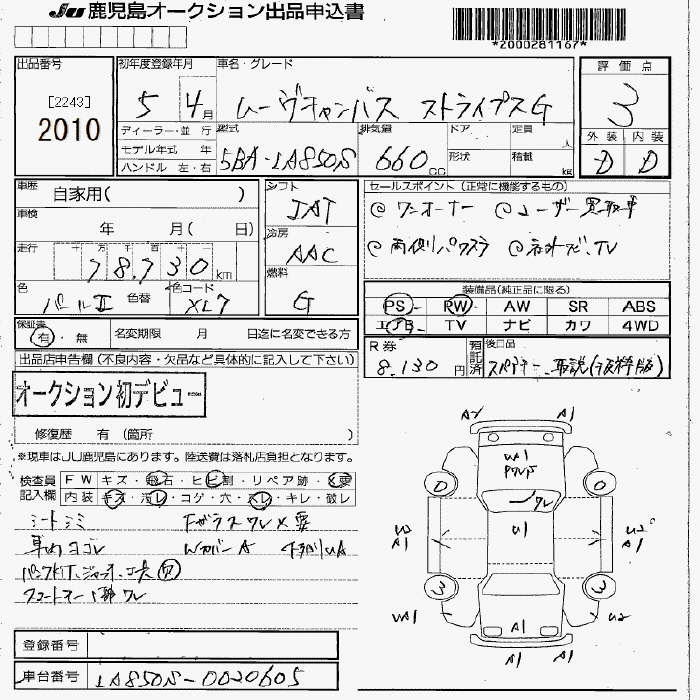 JU 鹿児島オークション出品申込書
*2000281167*
出品番号
[2243]
2010
初年度登録年月
5 4月
車名・グレード
ムーヴキャンバス ストライプスG
評価点
3
外装 内装
D D
ディーラー・並 行
モデル年式 年
ハンドル 左・右
型式
5BA-LA850S
排気量
660cc
ドア
形状
定員
人
積載
kg
車歴
自家用( )
車検
年 月( 日)
走行
十 万 千 百 十 一
78,730km
色
パールII
色替
色コード
XL7
シフト
IAT
冷房
AAC
燃料
G
セールスポイント (正常に機能するもの)
@ワンオーナー @ユーザー買取車
@両側パワスラ @社ナビ、TV
装備品(純正品に限る)
PS PW AW SR ABS
エアB TV ナビ カワ 4WD
保証書
有・無
名変期限 月 日迄に名変できる方
R券
8,130円
預託済
後日品
スペアキー、取説(抜粋版)
出品店申告欄(不良内容・欠品など具体的に記入して下さい)
オークション初デビュー
修復歴 有 (箇所 )
※現車はJU鹿児島にあります。陸送費は落札店負担となります。
検査員
記入欄
FW キズ・飛石・ヒビ割・リペア跡・X要
内装 キズ・汚レ・コゲ・穴・スレ・キレ・破レ
シートシミ Fガラスワレ×要
車内ヨゴレ Wカバー A 下廻りUA
パンク修理、ジャッキ、工具有
登録番号
車台番号 LA850S-0020605
A2 A1
UA1
0 0
ワレ
U2 A1
U1
U2 A1
3 3
UA1 A1 U2
A1 A1